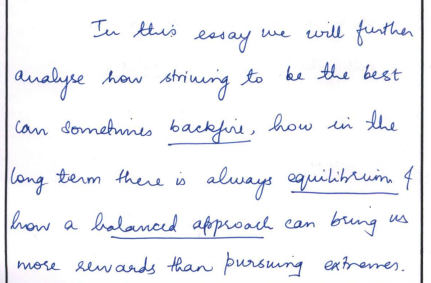 In this essay we will further
analyse how striving to be the best
can sometimes backfire, how in the
long term there is always equilibrium &
how a balanced approach can bring us
more rewards than pursuing extremes.